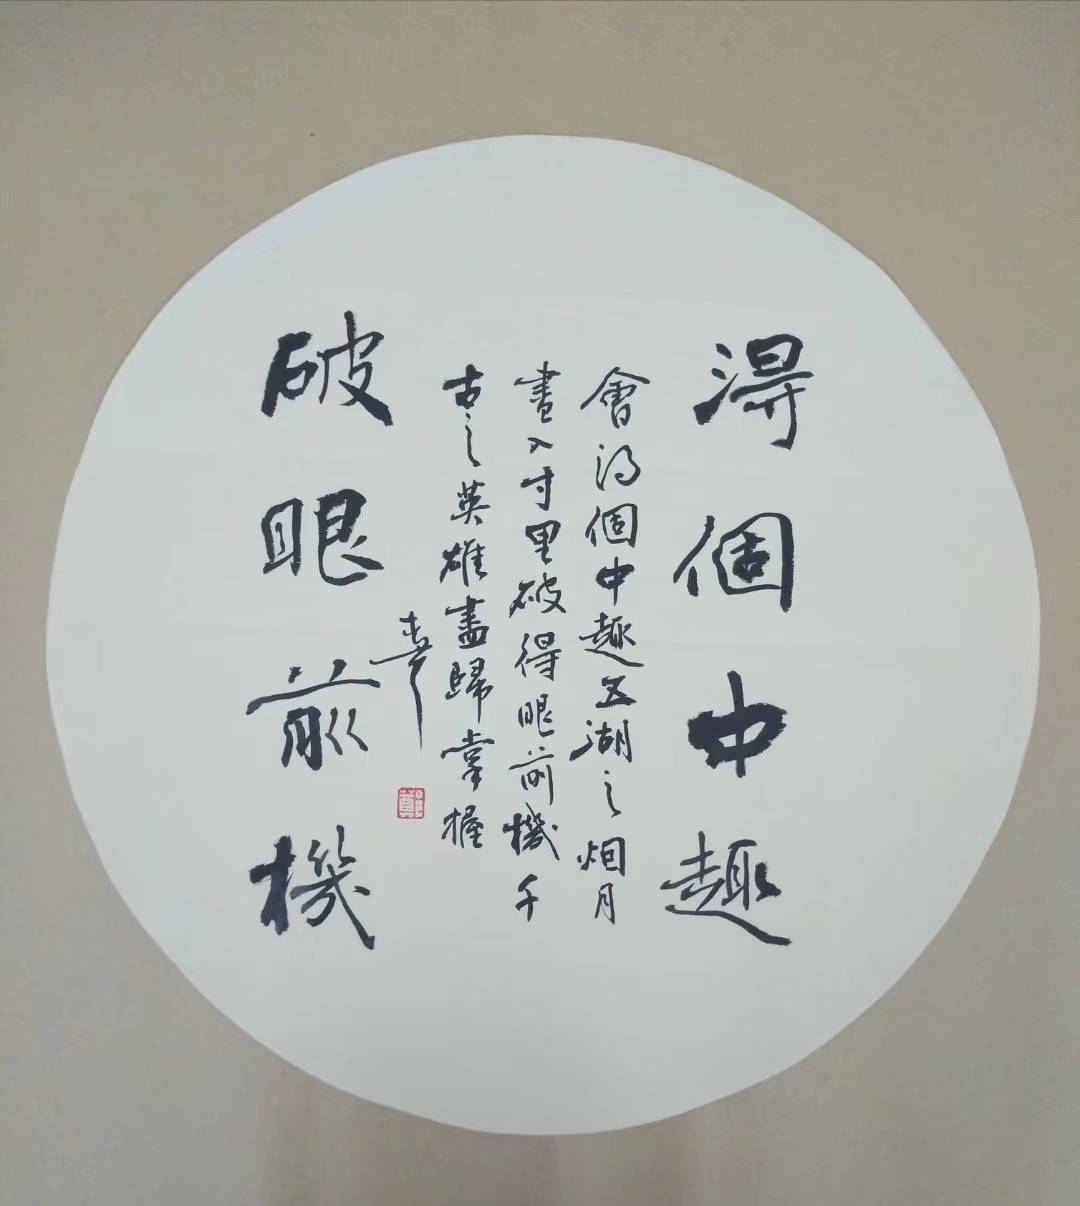 得個中趣
會得個中趣五湖之烟月
盡入寸里破得眼前機千
古之英雄盡歸掌握
破眼前機